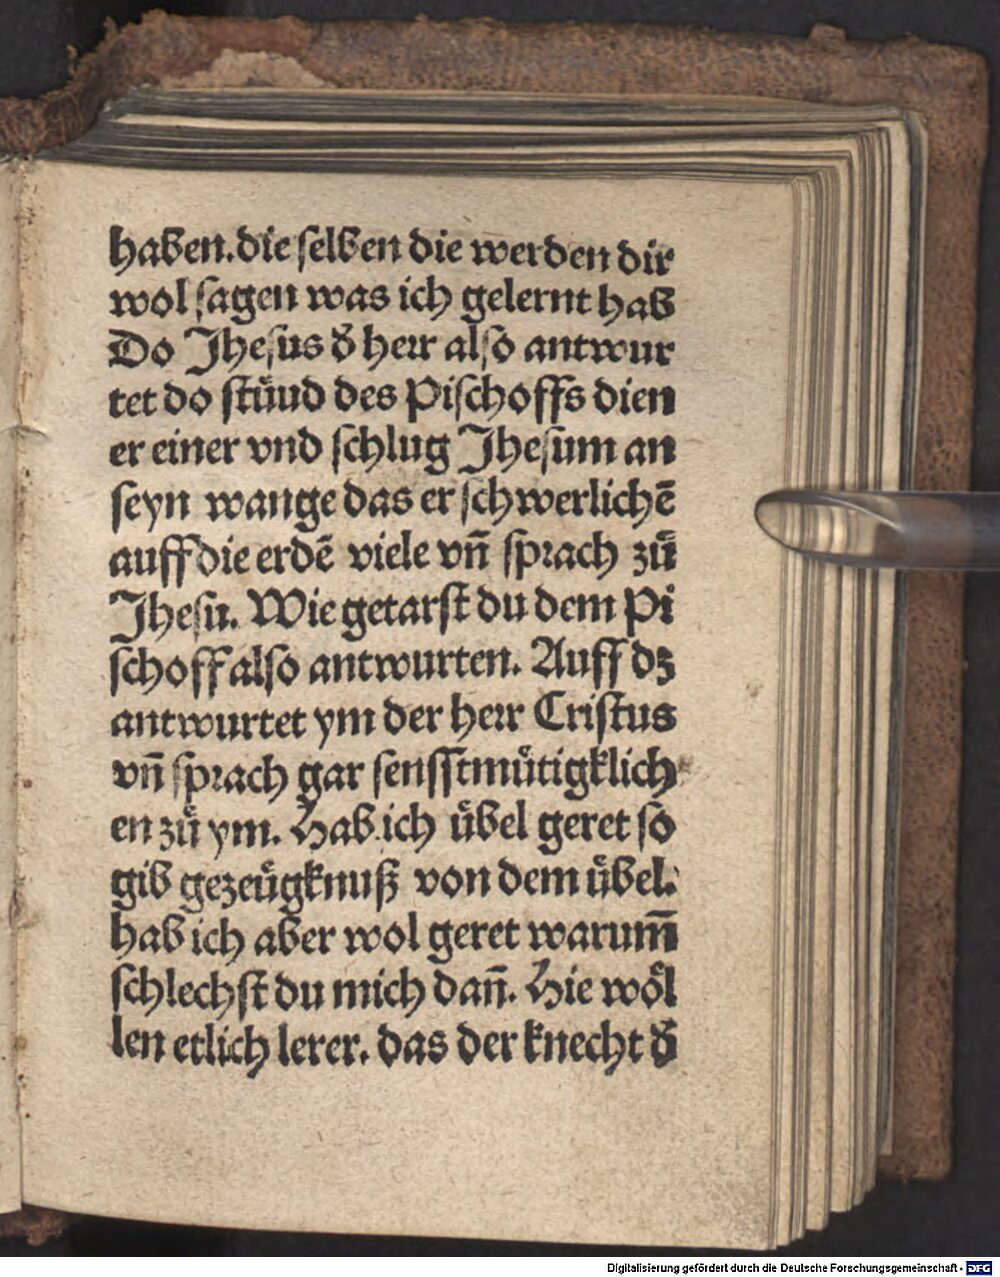 haben. die ſelben die werden dir
wol ſagen was ich gelernt hab
Do Jheſus d̕ herꝛ alſo antwur
tet do ſtuͤnd des Piſchoffs dien
er einer vnd ſchlug Jheſum an
ſeyn wange das er ſchwerlichē
auff die erdē viele vn̄ ſpꝛach zuͤ
Jheſu. Wie getarſt du dem Pi
ſchoff alſo antwurten. Auff dz
antwurtet ym der herꝛ Criſtus
vn̄ ſpꝛach gar ſenfftmuͤtigklich
en zuͤ ym. Hab ich uͤbel geret ſo
gib gezeuͤgknuß von dem uͤbel.
hab ich aber wol geret warum̄
ſchlechſt du mich dan̄. Hie woͤl
len etlich lerer. das der knecht d̕
Digitalisierung gefördert durch die Deutsche Forschungsgemeinschaft - DFG